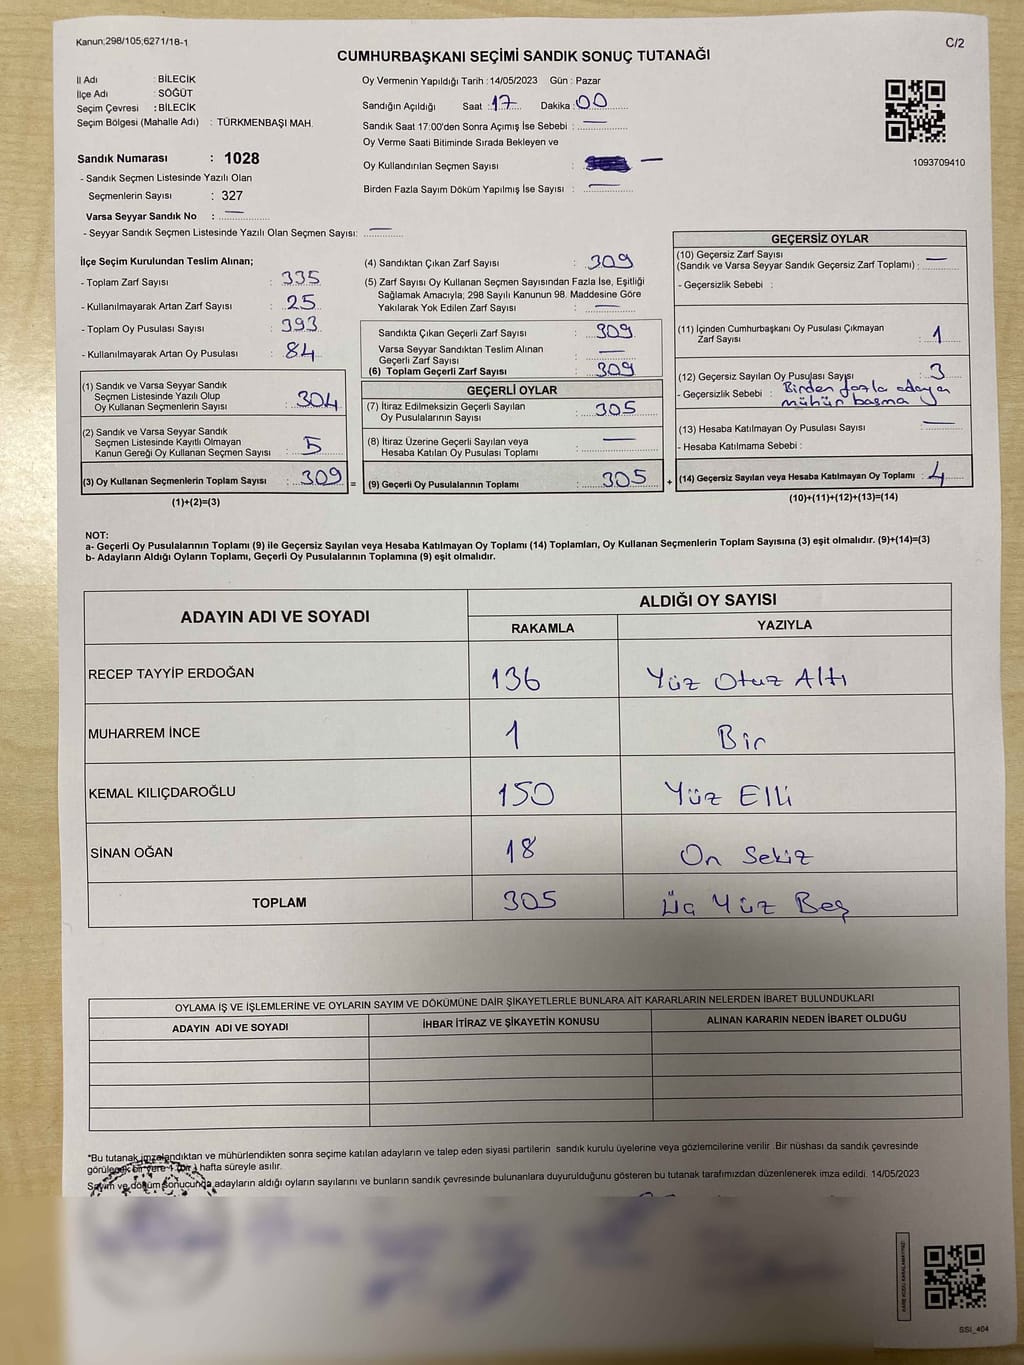 Kanun;298/105;6271/18-1
C/2
CUMHURBAŞKANI SEÇİMİ SANDIK SONUÇ TUTANAĞI
İl Adı : BİLECİK
İlçe Adı : SÖĞÜT
Seçim Çevresi : BİLECİK
Seçim Bölgesi (Mahalle Adı) : TÜRKMENBAŞI MAH.
Oy Vermenin Yapıldığı Tarih : 14/05/2023 Gün : Pazar
Sandığın Açıldığı Saat : 17 Dakika : 00
Sandık Saat 17:00'den Sonra Açımış İse Sebebi : —
Oy Verme Saati Bitiminde Sırada Bekleyen ve
Oy Kullandırılan Seçmen Sayısı : —
Birden Fazla Sayım Döküm Yapılmış İse Sayısı : —
1093709410
Sandık Numarası : 1028
- Sandık Seçmen Listesinde Yazılı Olan
Seçmenlerin Sayısı : 327
Varsa Seyyar Sandık No : —
- Seyyar Sandık Seçmen Listesinde Yazılı Olan Seçmen Sayısı: —
İlçe Seçim Kurulundan Teslim Alınan;
- Toplam Zarf Sayısı : 335
- Kullanılmayarak Artan Zarf Sayısı : 25
- Toplam Oy Pusulası Sayısı : 393
- Kullanılmayarak Artan Oy Pusulası : 84
(1) Sandık ve Varsa Seyyar Sandık
Seçmen Listesinde Yazılı Olup
Oy Kullanan Seçmenlerin Sayısı : 304
(2) Sandık ve Varsa Seyyar Sandık
Seçmen Listesinde Kayıtlı Olmayan
Kanun Gereği Oy Kullanan Seçmen Sayısı : 5
(3) Oy Kullanan Seçmenlerin Toplam Sayısı : 309 =
(1)+(2)=(3)
(4) Sandıktan Çıkan Zarf Sayısı : 309
(5) Zarf Sayısı Oy Kullanan Seçmen Sayısından Fazla İse, Eşitliği
Sağlamak Amacıyla; 298 Sayılı Kanunun 98. Maddesine Göre
Yakılarak Yok Edilen Zarf Sayısı : —
Sandıkta Çıkan Geçerli Zarf Sayısı : 309
Varsa Seyyar Sandıktan Teslim Alınan
Geçerli Zarf Sayısı : —
(6) Toplam Geçerli Zarf Sayısı : 309
GEÇERLİ OYLAR
(7) İtiraz Edilmeksizin Geçerli Sayılan
Oy Pusulalarının Sayısı : 305
(8) İtiraz Üzerine Geçerli Sayılan veya
Hesaba Katılan Oy Pusulası Toplamı : —
(9) Geçerli Oy Pusulalarının Toplamı : 305 +
GEÇERSİZ OYLAR
(10) Geçersiz Zarf Sayısı
(Sandık ve Varsa Seyyar Sandık Geçersiz Zarf Toplamı) : —
- Geçersizlik Sebebi :
(11) İçinden Cumhurbaşkanı Oy Pusulası Çıkmayan
Zarf Sayısı : 1
(12) Geçersiz Sayılan Oy Pusulası Sayısı : 3
- Geçersizlik Sebebi : Birden fazla adaya
mühür basma
(13) Hesaba Katılmayan Oy Pusulası Sayısı : —
- Hesaba Katılmama Sebebi :
(14) Geçersiz Sayılan veya Hesaba Katılmayan Oy Toplamı : 4
(10)+(11)+(12)+(13)=(14)
NOT:
a- Geçerli Oy Pusulalarının Toplamı (9) ile Geçersiz Sayılan veya Hesaba Katılmayan Oy Toplamı (14) Toplamları, Oy Kullanan Seçmenlerin Toplam Sayısına (3) eşit olmalıdır. (9)+(14)=(3)
b- Adayların Aldığı Oyların Toplamı, Geçerli Oy Pusulalarının Toplamına (9) eşit olmalıdır.
ADAYIN ADI VE SOYADI
ALDIĞI OY SAYISI
RAKAMLA YAZIYLA
RECEP TAYYİP ERDOĞAN 136 Yüz Otuz Altı
MUHARREM İNCE 1 Bir
KEMAL KILIÇDAROĞLU 150 Yüz Elli
SİNAN OĞAN 18 On Sekiz
TOPLAM 305 Üç Yüz Beş
OYLAMA İŞ VE İŞLEMLERİNE VE OYLARIN SAYIM VE DÖKÜMÜNE DAİR ŞİKAYETLERLE BUNLARA AİT KARARLARIN NELERDEN İBARET BULUNDUKLARI
ADAYIN ADI VE SOYADI İHBAR İTİRAZ VE ŞİKAYETİN KONUSU ALINAN KARARIN NEDEN İBARET OLDUĞU
*Bu tutanak imzalandıktan ve mühürlendikten sonra seçime katılan adayların ve talep eden siyasi partilerin sandık kurulu üyelerine veya gözlemcilerine verilir. Bir nüshası da sandık çevresinde
görülecek bir yere 1 (bir) hafta süreyle asılır.
Sayım ve döküm sonucunda adayların aldığı oyların sayılarını ve bunların sandık çevresinde bulunanlara duyurulduğunu gösteren bu tutanak tarafımızdan düzenlenerek imza edildi. 14/05/2023
KARE KODU KARALAMAYINIZ!
SSI_404